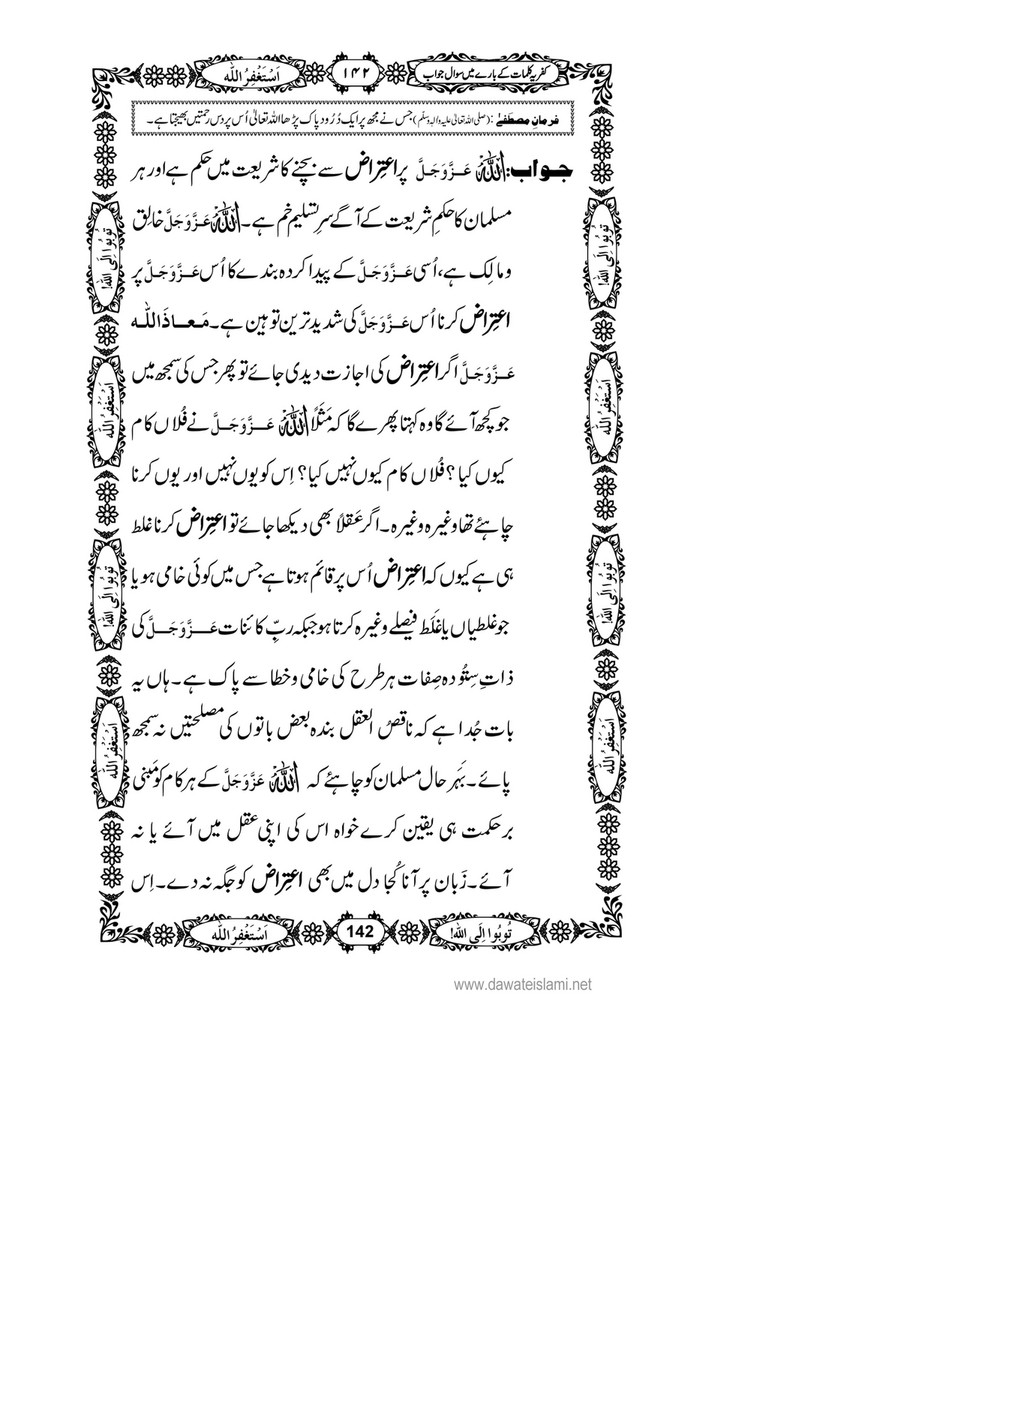 کفریہ کلمات کے بارے میں سوال جواب
۱۴۲
اَسْتَغْفِرُ اللّٰه
فرمانِ مصطفےٰ: (صلی اللہ تعالیٰ علیہ والہ وسلم) جس نے مجھ پر ایک دُرُود پاک پڑھا اللہ تعالیٰ اُس پر دس رحمتیں بھیجتا ہے۔
جواب: اللّٰہ عَزَّوَجَلَّ پر اعتِراض سے بچنے کا شریعت میں حکم ہے اور ہر
مسلمان کا حکمِ شریعت کے آگے سرِ تسلیم خم ہے۔ اللّٰہ عَزَّوَجَلَّ خالِق
و مالِک ہے، اُسی عَزَّوَجَلَّ کے پیدا کردہ بندے کا اُس عَزَّوَجَلَّ پر
اعتِراض کرنا اُس عَزَّوَجَلَّ کی شدید ترین توہین ہے۔ مَعَاذَاللّٰہ
عَزَّوَجَلَّ اگر اعتِراض کی اجازت دیدی جائے تو پھر جس کی سمجھ میں
جو کچھ آئے گا وہ کہتا پھرے گا کہ مَثَلًا اللّٰہ عَزَّوَجَلَّ نے فُلاں کام
کیوں کیا؟ فُلاں کام کیوں نہیں کیا؟ اِس کو یوں نہیں اور یوں کرنا
چاہئے تھا وغیرہ وغیرہ۔ اگر عَقلًا بھی دیکھا جائے تو اعتِراض کرنا غلط
ہی ہے کیوں کہ اعتِراض اُس پر قائم ہوتا ہے جس میں کوئی خامی ہو یا
جو غلطیاں یا غَلَط فیصلے وغیرہ کرتا ہو جبکہ ربِّ کائنات عَزَّوَجَلَّ کی
ذاتِ سِتُودہ صِفات ہر طرح کی خامی و خطا سے پاک ہے۔ ہاں یہ
بات جُدا ہے کہ ناقصُ العقل بندہ بعض باتوں کی مصلحتیں نہ سمجھ
پائے۔ بَہَر حال مسلمان کو چاہئے کہ اللّٰہ عَزَّوَجَلَّ کے ہر کام کو مَبنی
بر حکمت ہی یقین کرے خواہ اس کی اپنی عقل میں آئے یا نہ
آئے۔ زَبان پر آنا کُجا دل میں بھی اعتِراض کو جگہ نہ دے۔ اِس
تُوبُوا اِلَی اللّٰه!
اَسْتَغْفِرُ اللّٰه
تُوبُوا اِلَی اللّٰه!
اَسْتَغْفِرُ اللّٰه
تُوبُوا اِلَی اللّٰه!
اَسْتَغْفِرُ اللّٰه
تُوبُوا اِلَی اللّٰه!
اَسْتَغْفِرُ اللّٰه
تُوبُوا اِلَی اللّٰه!
142
اَسْتَغْفِرُ اللّٰه
www.dawateislami.net